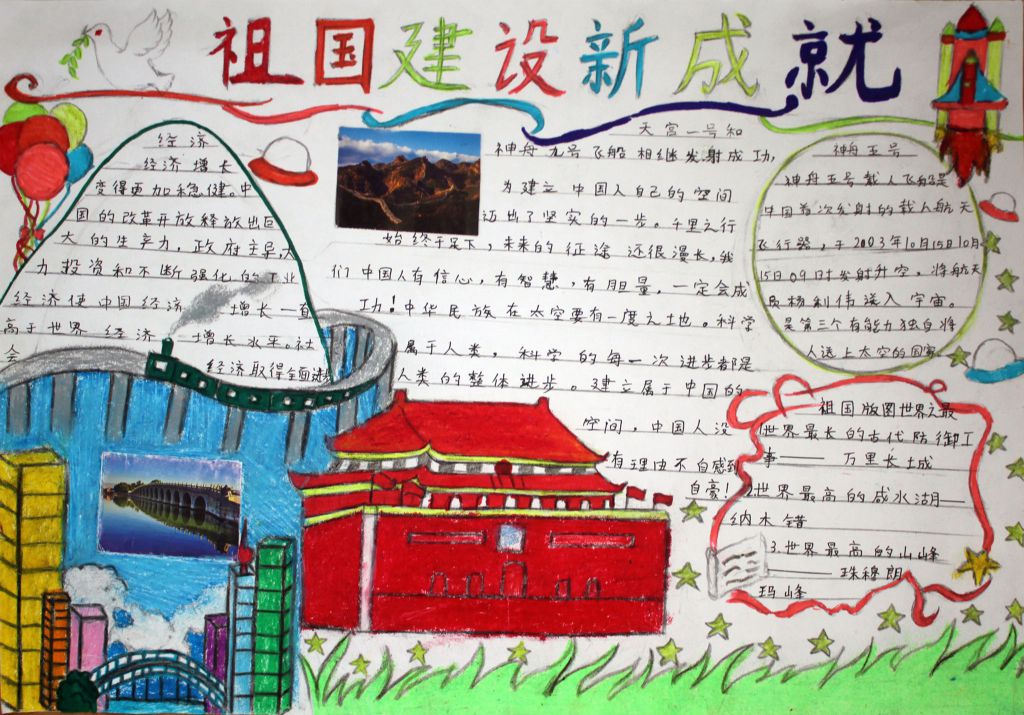 祖国建设新成就
经济
经济增长
变得更加稳健。中
国的改革开放释放出巨
大的生产力，政府主导，大
力投资和不断强化的工业
经济使中国经济增长一直
高于世界经济增长水平。社
会
经济取得全面进步
天宫一号和
神舟九号飞船相继发射成功，
为建立中国人自己的空间
迈出了坚实的一步。千里之行
始终于足下，未来的征途还很漫长，我
们中国人有信心，有智慧，有胆量，一定会成
功！中华民族在太空要有一度之地。科学
属于人类，科学的每一次进步都是
人类的整体进步。建立属于中国的
空间，中国人没
有理由不自感到
自豪！
神舟五号
神舟五号载人飞船是
中国首次发射的载人航天
飞行器，于2003年10月15日10月
15日09日时发射升空，将航天
员杨利伟送入宇宙。
是第三个有能力独自将
人送上太空的国家
祖国版图世界之最
1世界最长的古代防御工
事——万里长城
2世界最高的咸水湖—
纳木错
3.世界最高的山峰
——珠穆朗
玛峰